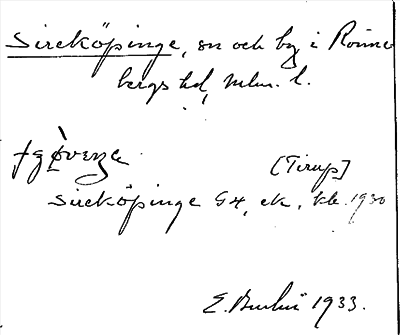 Sireköpinge, sn och by i Rönne
bergs hd, Mlm. l.
[Tirup]
Sireköpinge G4, ek. kbl. 1930
1933.